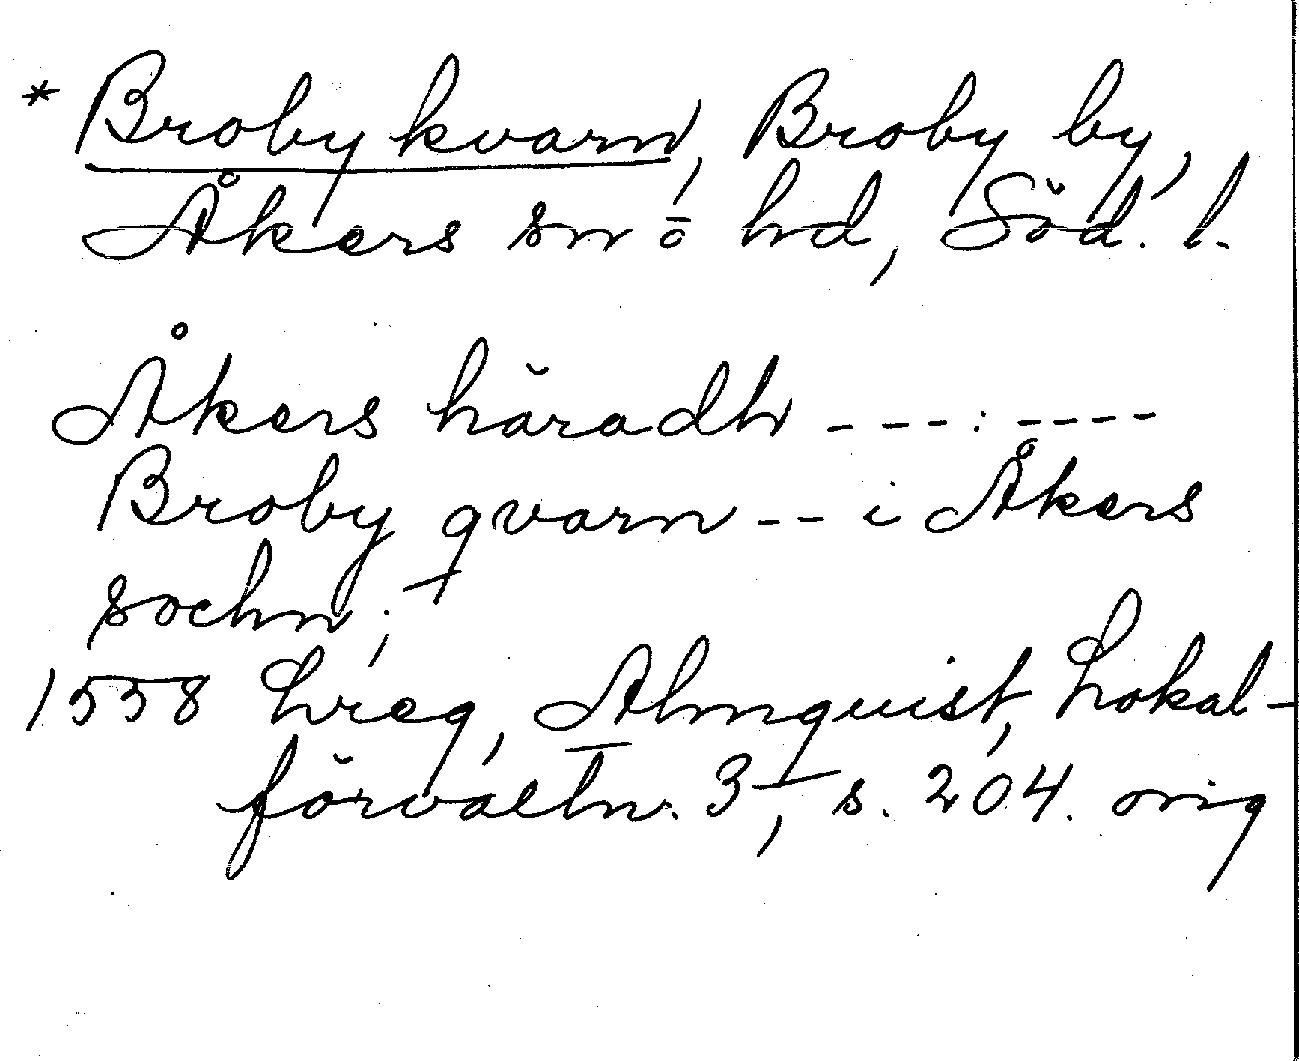 * Broby kvarn, Broby by,
Åkers sn o hd, Söd. l.
Åkers häradh ---:----
Broby qvarn -- i Åkers
sochn;
1558 Lreg, Almquist, Lokal-
förvaltn. 3, s. 204. orig